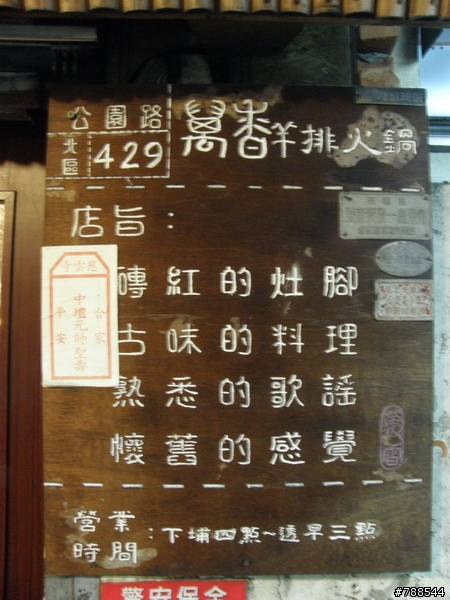 公園路
北區 429
萬香羊排火鍋
店旨：
磚紅的灶腳
古味的料理
熟悉的歌謠
懷舊的感覺
營業時間：下埔四點~透早三點
慈雲寺
合家平安
中壇元帥聖壽
警安保全
#788544